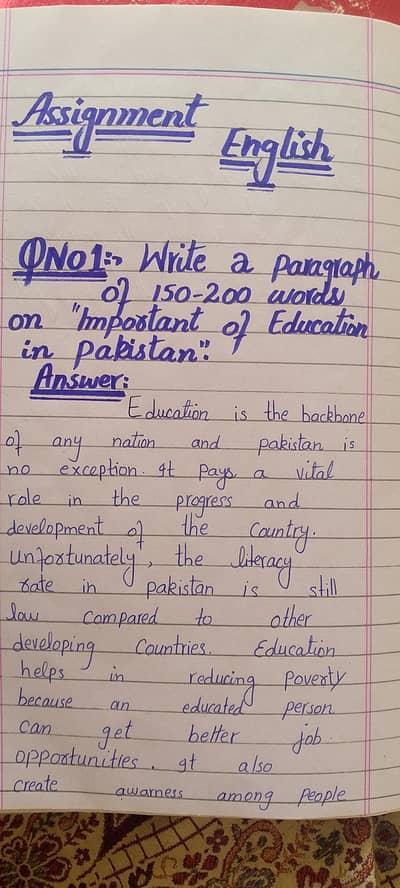 Assignment
English
QNo1:- Write a paragraph
of 150-200 words
on "Impostant of Education
in pakistan".
Answer:
Education is the backbone
of any nation and pakistan is
no exception. It pays a vital
role in the progress and
development of the Country.
unfortunately, the literacy
rate in pakistan is still
law compared to other
developing Countries. Education
helps in reducing poverty
because an educated person
can get better job
opportunities. It also
create awarness among people